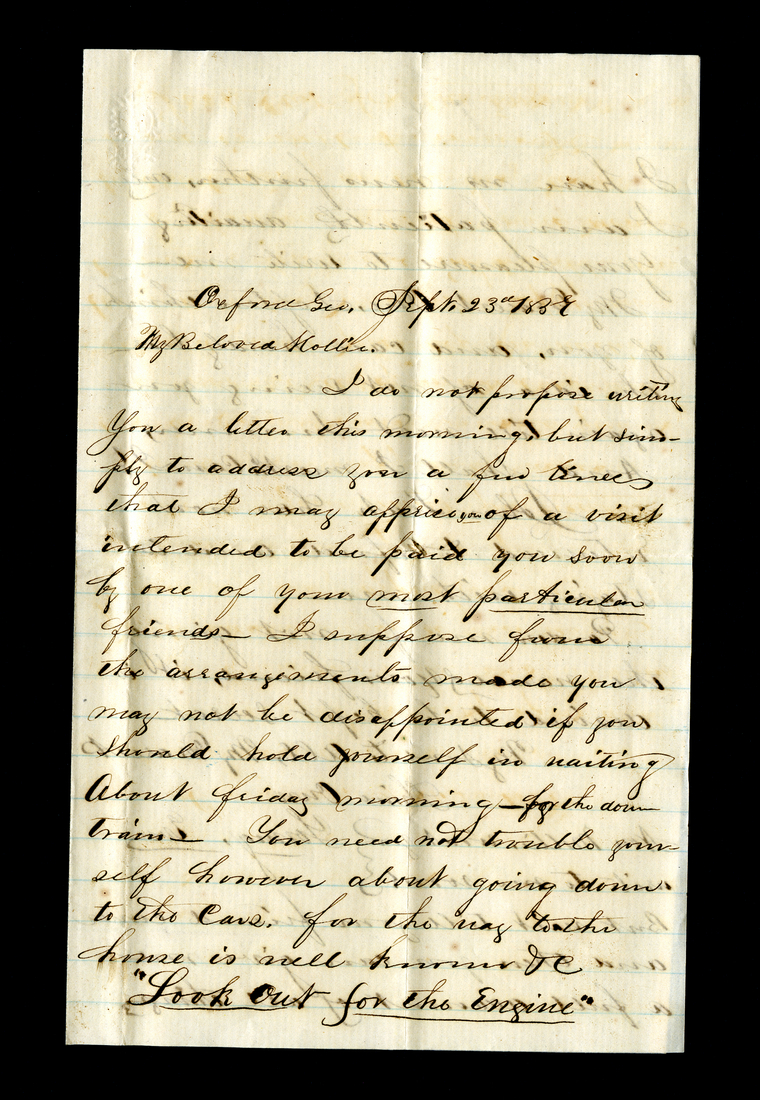 Oxford Geo, Sept. 23rd 185
My Beloved Mollie.
I do not propose writing
You a letter this morning, but sim-
ply to address you a few lines
that I may apprise you of a visit
intended to be paid you soon
by one of your most particular
friends — I suppose from
the arrangements made you
may not be disappointed if you
should hold yourself in waiting
About friday morning — for the down
train — . You need not trouble your-
self however about going down
to the Cars. for the way to the
house is well known &C
"Look Out for the Engine"